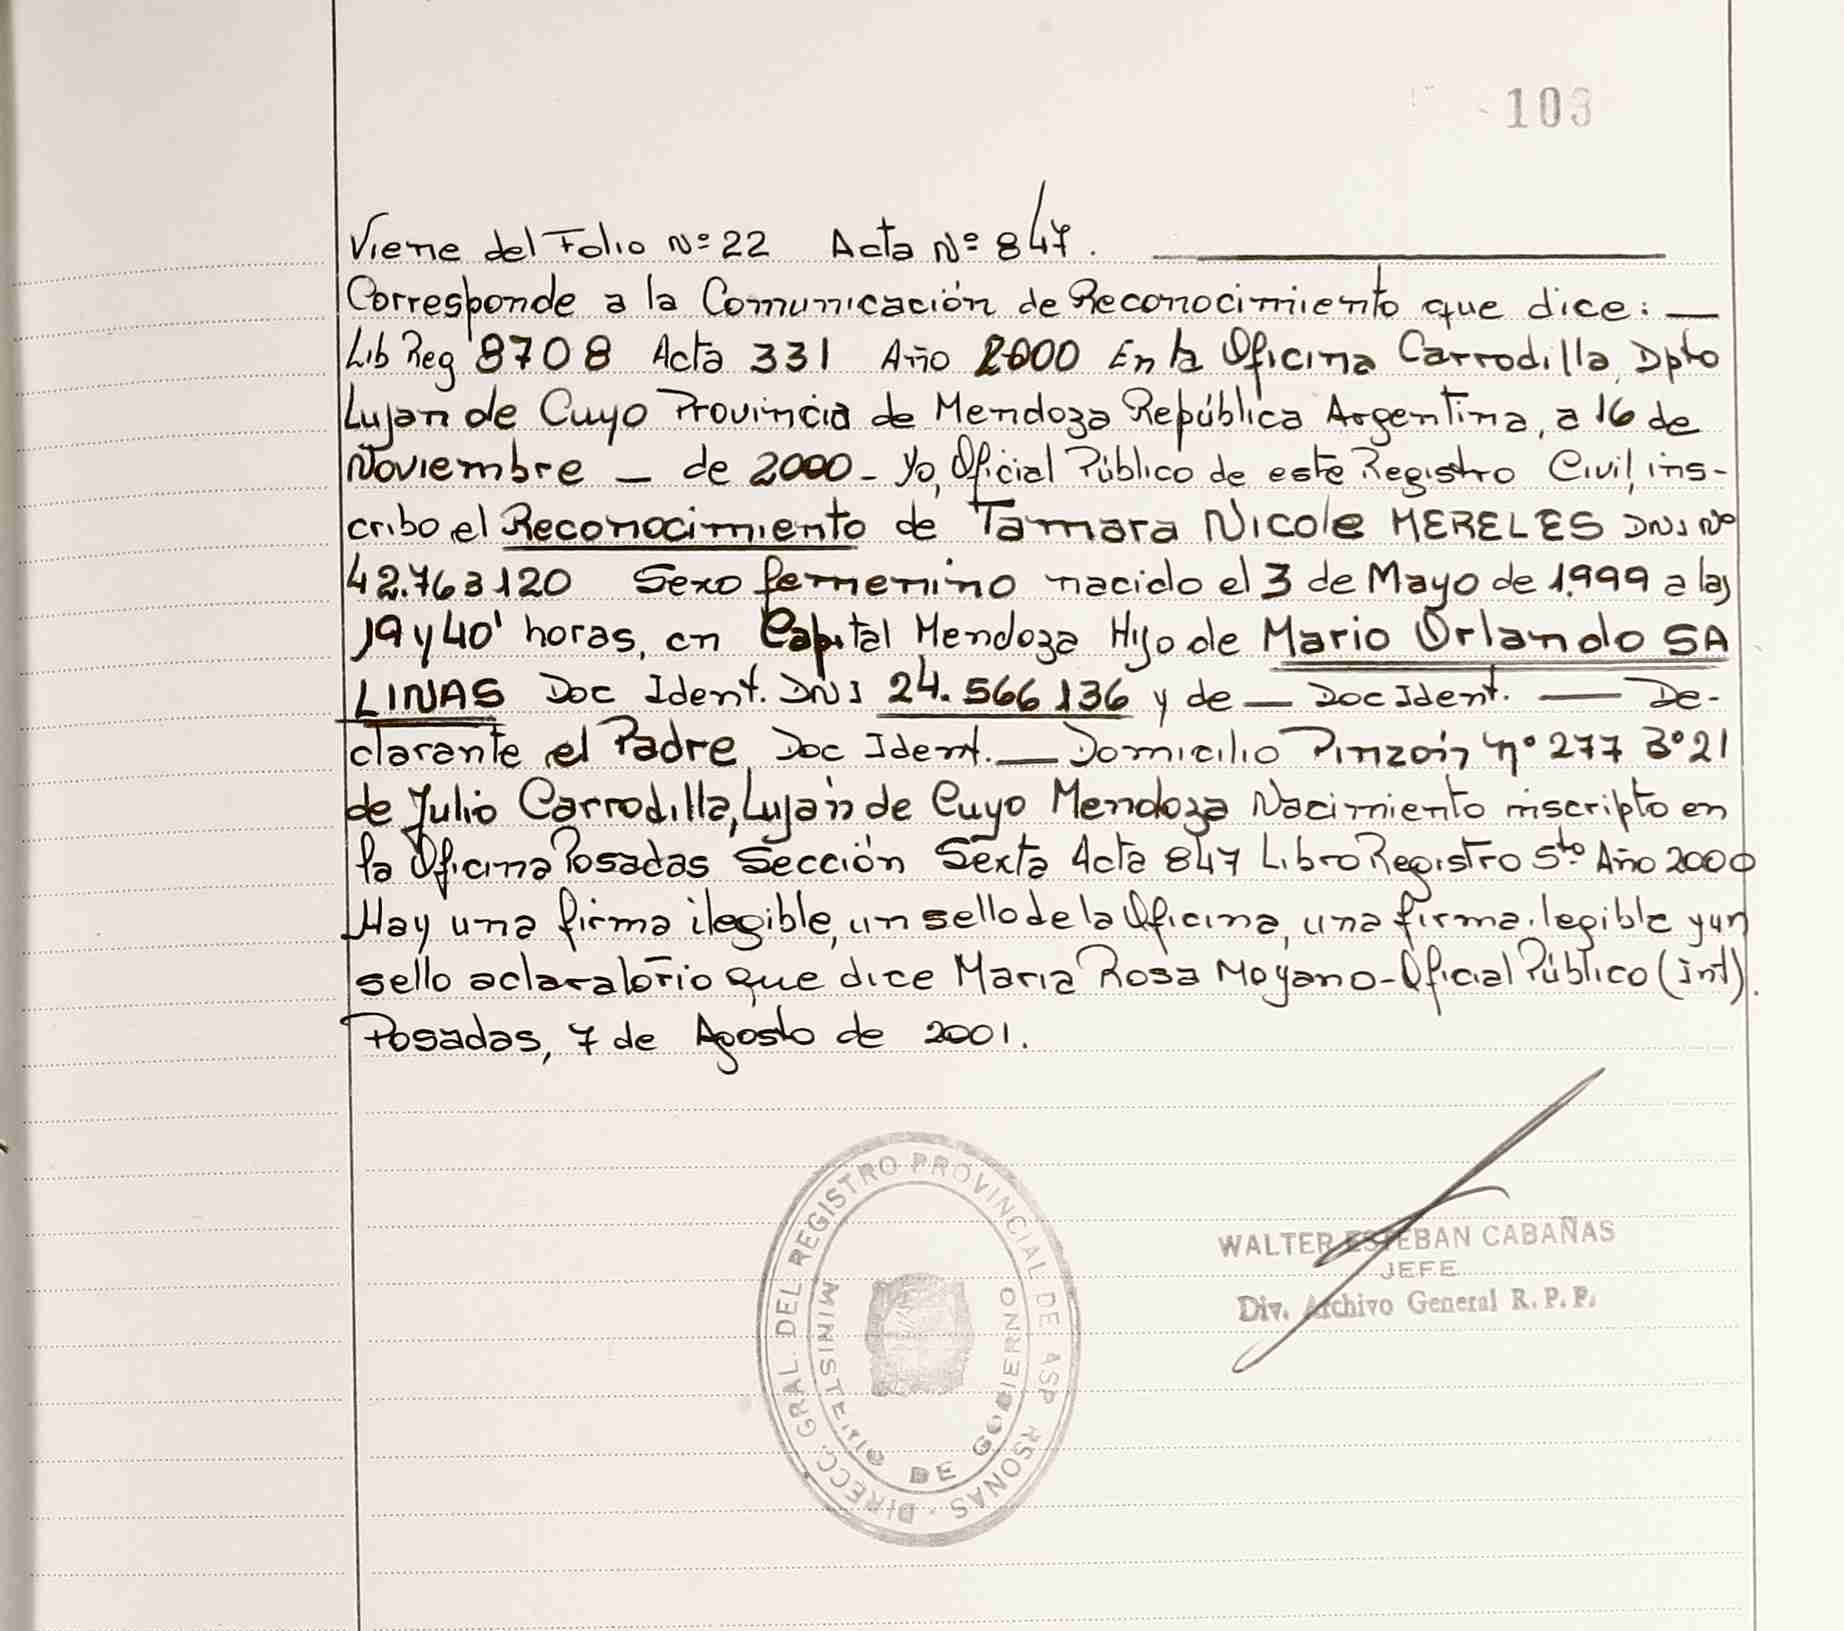 103
Viene del Folio Nº 22 Acta Nº 847.
Corresponde a la Comunicación de Reconocimiento que dice: —
Lib Reg 8708 Acta 331 Año 2000 En la Oficina Carrodilla, Dpto
Lujan de Cuyo Provincia de Mendoza República Argentina, a 16 de
Noviembre — de 2000 - Yo, Oficial Público de este Registro Civil, ins-
cribo el Reconocimiento de Tamara Nicole MERELES DNI Nº
42.763120 Sexo femenino nacido el 3 de Mayo de 1.999 a las
19 y 40' horas, en Capital Mendoza Hijo de Mario Orlando SA
LINAS Doc Ident. DNI 24.566136 y de — Doc Ident. — De-
clarante el Padre Doc Ident. — Domicilio Pinzón nº 277 Bº 21
de Julio Carrodilla, Luján de Cuyo Mendoza Nacimiento inscripto en
la Oficina Posadas Sección Sexta Acta 847 Libro Registro 5to Año 2000
Hay una firma ilegible, un sello de la Oficina, una firma ilegible y un
sello aclaratorio que dice Maria Rosa Moyano - Oficial Público (int).
Posadas, 7 de Agosto de 2001.
DIRECC. GRAL. DEL REGISTRO PROVINCIAL DE
MINISTERIO DE GOBIERNO
WALTER ESTEBAN CABAÑAS
JEFE
Div. Archivo General R.P.P.